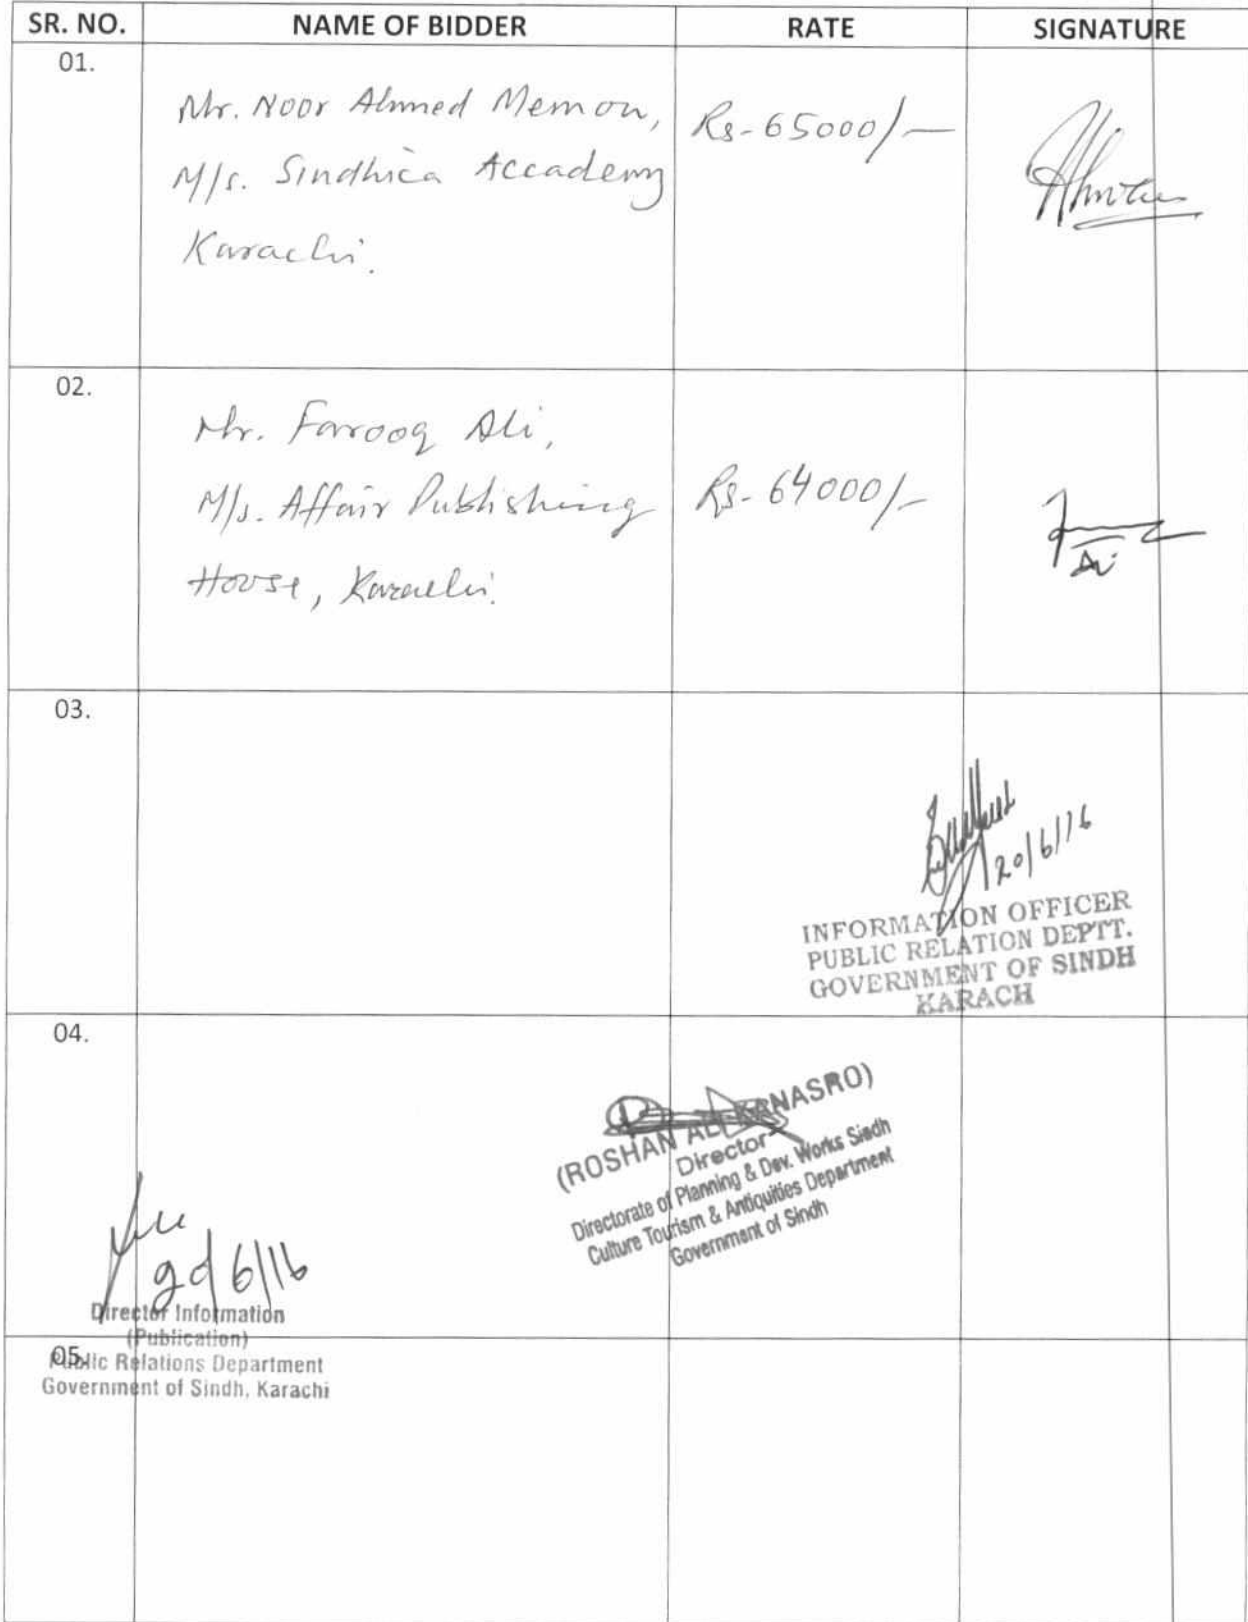 SR. NO. NAME OF BIDDER RATE SIGNATURE
01.
Mr. Noor Ahmed Memon,
M/s. Sindhica Accademy
Karachi.
Rs-65000/-
02.
Mr. Farooq Ali,
M/s. Affair Publishing
House, Karachi.
Rs-64000/-
03.
20/6/16
INFORMATION OFFICER
PUBLIC RELATION DEPTT.
GOVERNMENT OF SINDH
KARACH
04.
(ROSHAN ALI KANASRO)
Director
Directorate of Planning & Dev. Works Sindh
Culture Tourism & Antiquities Department
Government of Sindh
6/16
Director Information
(Publication)
Public Relations Department
Government of Sindh, Karachi
05.